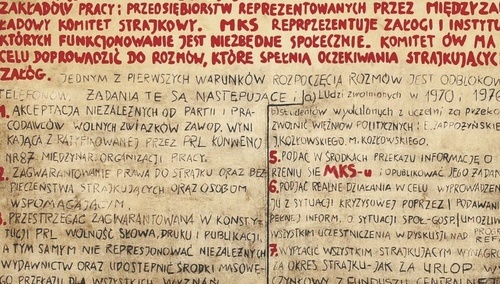 ZAKŁADÓW PRACY I PRZEDSIĘBIORSTW REPREZENTOWANYCH PRZEZ MIĘDZYZA
ŁADOWY KOMITET STRAJKOWY. MKS REPRPZENTUJE ZAŁOGI I INSTY
KTÓRYCH FUNKCJONOWANIE JEST NIEZBĘDNE SPOŁECZNIE. KOMITET ÓW MA
CELU DOPROWADZIĆ DO ROZMÓW, KTÓRE SPEŁNIĄ OCZEKIWANIA STRAJKUJĄC
ZAŁÓG. JEDNYM Z PIERWSZYCH WARUNKÓW ROZPOCZĘCIA ROZMÓW JEST ODBLOKO
TELEFONÓW, ŻĄDANIA TE SĄ NASTĘPUJĄCE:
1. AKCEPTACJA NIEZALEŻNYCH OD PARTII I PRA-
CODAWCÓW WOLNYCH ZWIĄZKÓW ZAWOD. WYNI
KAJĄCA Z RATYFIKOWANEJ PRZEZ PRL KONWENC
NR 87 MIĘDZYNAR. ORGANIZACJI PRACY.
2. ZAGWARANTOWANIE PRAWA DO STRAJKU ORAZ BEZ-
PIECZEŃSTWA STRAJKUJĄCYCH ORAZ OSOBOM
WSPOMAGAJĄCYM.
3. PRZESTRZEGAĆ ZAGWARANTOWANĄ W KONSTY-
TUCJI PRL WOLNOŚĆ SŁOWA, DRUKU I PUBLIKACJI,
A TYM SAMYM NIE REPRESJONOWAĆ NIEZALEŻNYCH
WYDAWNICTW ORAZ UDOSTĘPNIĆ ŚRODKI MASOWE-
GO PRZEKAZU DLA WSZYSTKICH WYZNAŃ.
a) Ludzi zwolnionych w 1970 i 1976
studentów wydalonych z uczelni za przeko
ZWOLNIĆ WIĘŹNIÓW POLITYCZNYCH: E. ZAPPOZYŃSK
KOJŁOWSKIEGO, M. KOZŁOWSKIEGO.
5. PODAĆ W ŚRODKACH PRZEKAZU INFORMACJĘ O
RZENIU SIĘ MKS-u I OPUBLIKOWAĆ JEGO ŻĄDAN
6. PODJĄĆ REALNE DZIAŁANIA W CELU WYPROWADZE
JU Z SYTUACJI KRYZYSOWEJ POPRZEZ: PODAWANI
PEŁNEJ INFORM. O SYTUACJI SPOŁ-GOSP; UMOŻLIW
WSZYSTKIM UCZESTNICZENIA W DYSKUSJI NAD PROGR
7. WYPŁACIĆ WSZYSTKIM STRAJKUJĄCYM WYNAGR
ZA OKRES STRAJKU-JAK ZA URLOP W
CZYNKOWY Z FUNDUSZU CENTRALNE